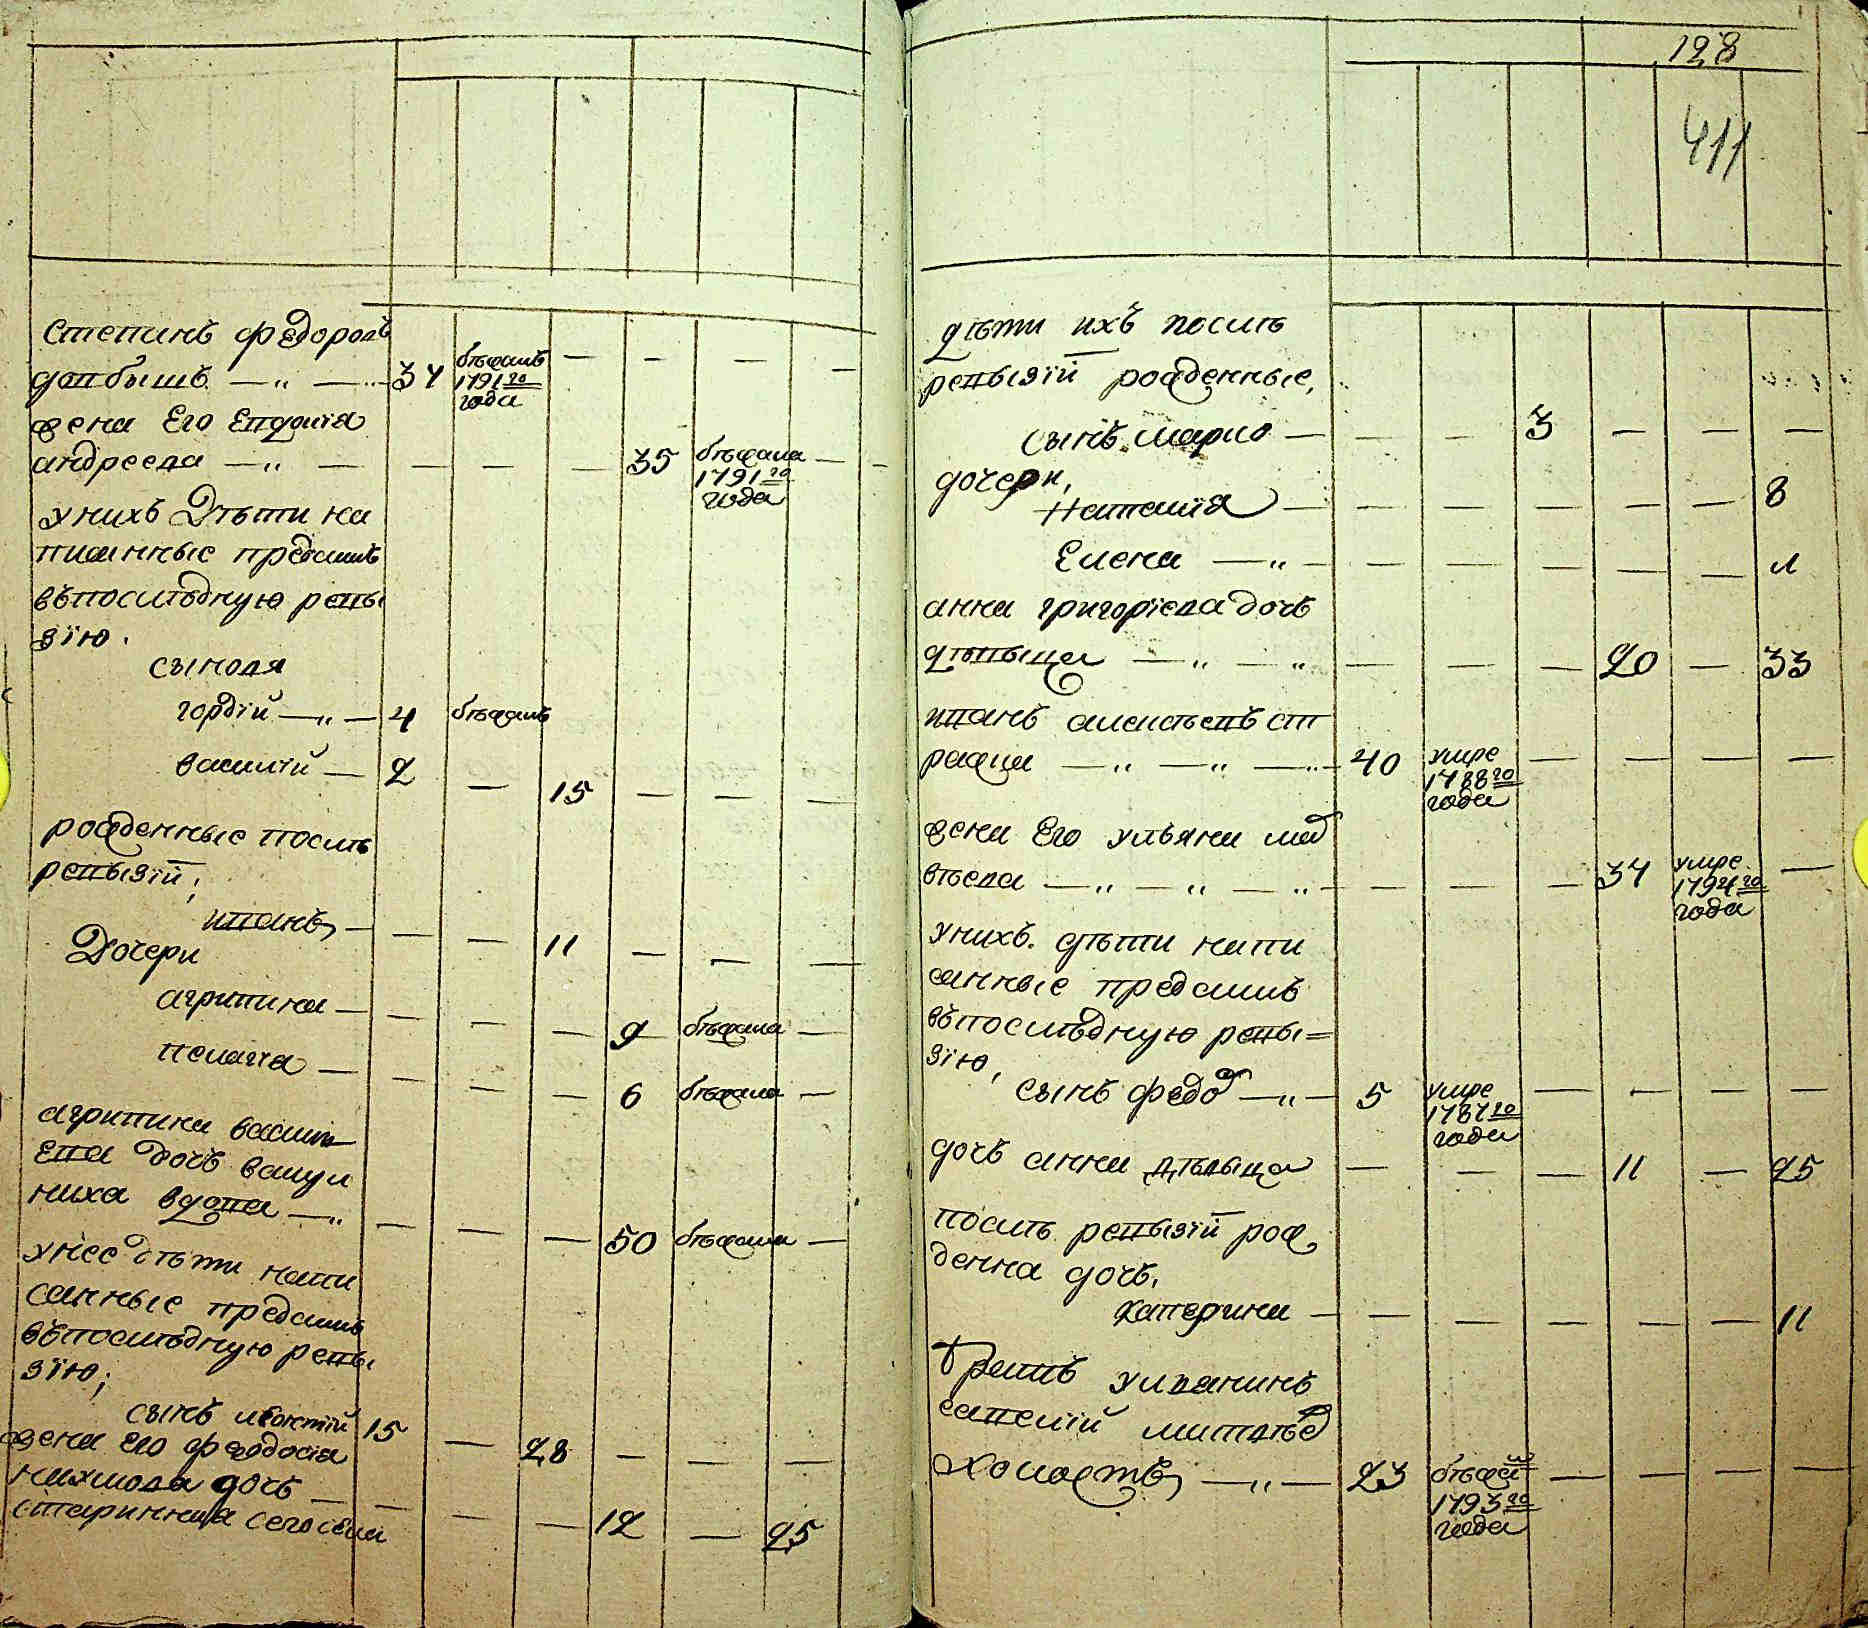 степинъ федоровъ
довбышъ — „ — 34 бѣжалъ 1791го года — — — —
жена Его Евдокія
андреева — „ — — — — 35 бѣжала 1791го года —
унихъ Дѣти на
писанные предъ симъ
въпослѣдную ревы
зїю.
сыновя
гордїй — „ — 4 бѣжалъ
василїй — 2 — 15 — — —
рожденные послѣ
ревызїй;
иванъ, — — — 11 — — —
Дочери
агрипина — — — — 9 бѣжала —
пелагїа — — — — 6 бѣжала —
агрипина васил
Ева дочъ
ниха вдова — „ — — — 50 бѣжала —
унее дѣти напи
санные предъ симъ
въпослѣдную ревы
зїю;
сынъ леонтїй 15 — 28 — — —
жена Его феодосїа
дочъ — — — — 12 — 25
128
411
дѣти ихъ послѣ
ревызїй рожденные,
сынъ марко — — — 3 — — —
дочери,
Наталїя — — — — — — 8
Елена — „ — — — — — — 1
анна григорїева дочъ
дѣвыца — „ — „ — — — 20 — 33
иванъ алексѣевъ ст
ражца — „ — „ — 40 умре 1788го года — — — —
жена Его ульяна мат
вѣева — „ — „ — „ — — — 34 умре 1794го года —
унихъ. дѣти напи
санные предъ симъ
въпослѣдную ревы=
зїю,
сынъ федор — „ — 5 умре 1787го года — — — —
дочъ анна дѣвыца — — — 11 — 25
послѣ ревызїй рож
денна дочъ,
катерина — — — — — — 11
братъ ульянинъ
савелїй матвѣев
холостъ, — „ — 23 бѣжал 1793го года — — — —